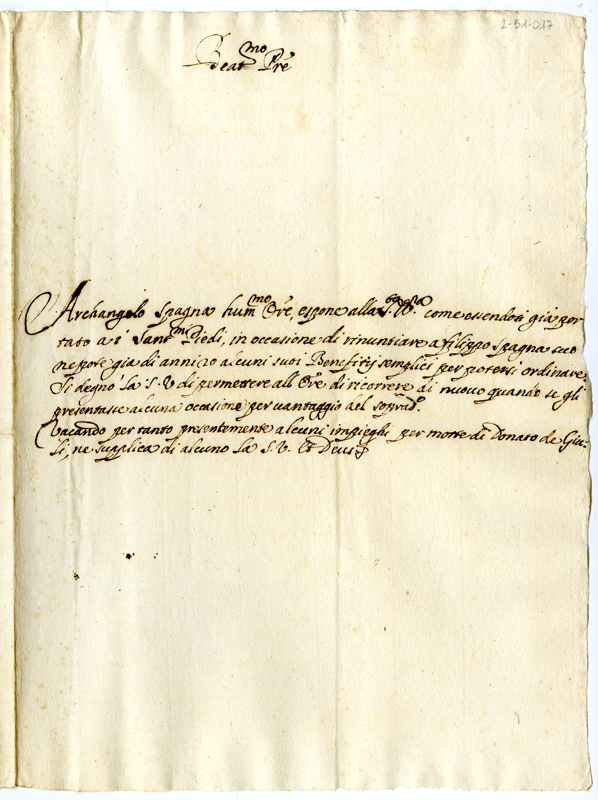 2-51-017
Beat.mo Prē
Archangelo Spagna hum.mo Ore, espone alla S. V.ra come essendosi già por-
tato a i Sant.mi Piedi, in occasione di rinuntiare a filippo Spagna suo
nepote gia di anni 20 alcuni suoi Benefitij semplici per potersi ordinare
Si degnò la S. V. di permettere all' Ore di ricorrere di nuovo quando se gli
presentasse alcuna occasione per vantaggio del soprad.o
Vacando per tanto presentemente alcuni impieghi per morte di Donato de Giu-
li, ne supplica di alcuno la S. V. Et Deus